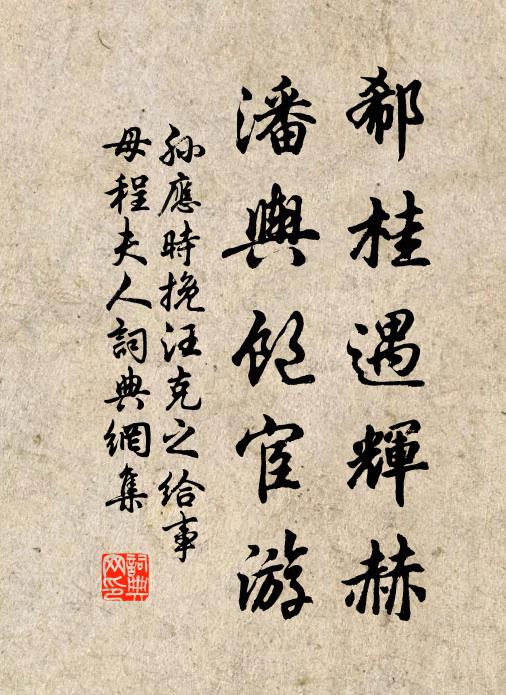 郗桂遇輝赫
潘輿飽宦游
孫應時挽汪克之給事
母程夫人詞典網集
詞典
网印